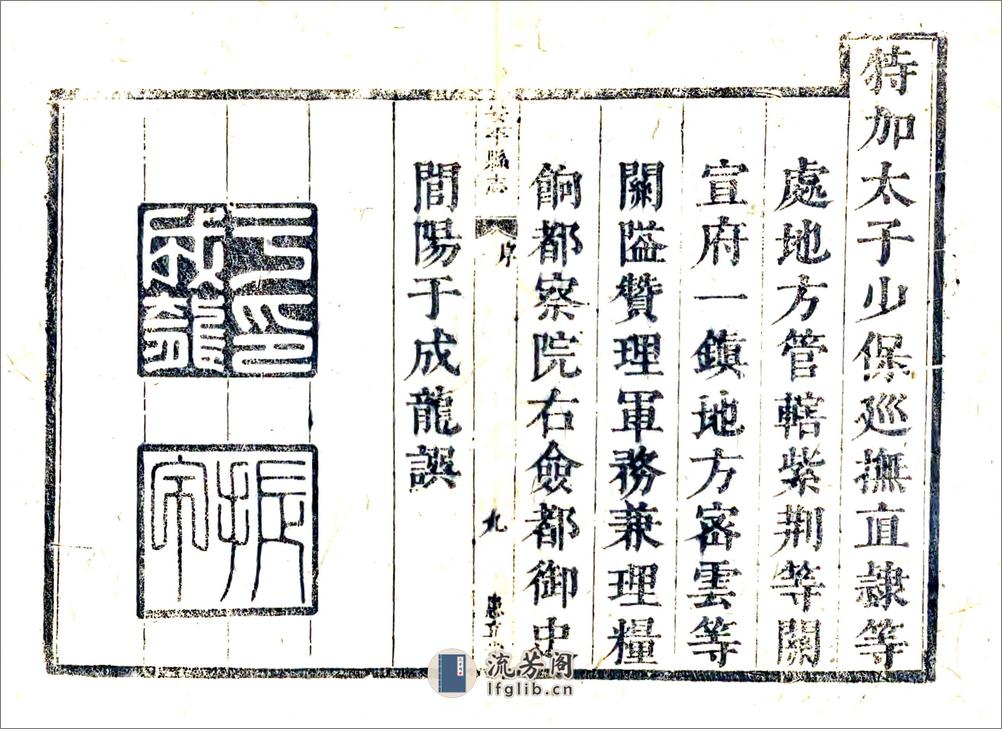 特加太子少保廵撫直隸等
處地方管轄紫荆等關
宣府一鎮地方密雲等
關隘贊理軍務兼理糧
餉都察院右僉都御史
安平縣志
序
九
間陽于成龍誤
于印成龍
流芳阁
lfglib.cn